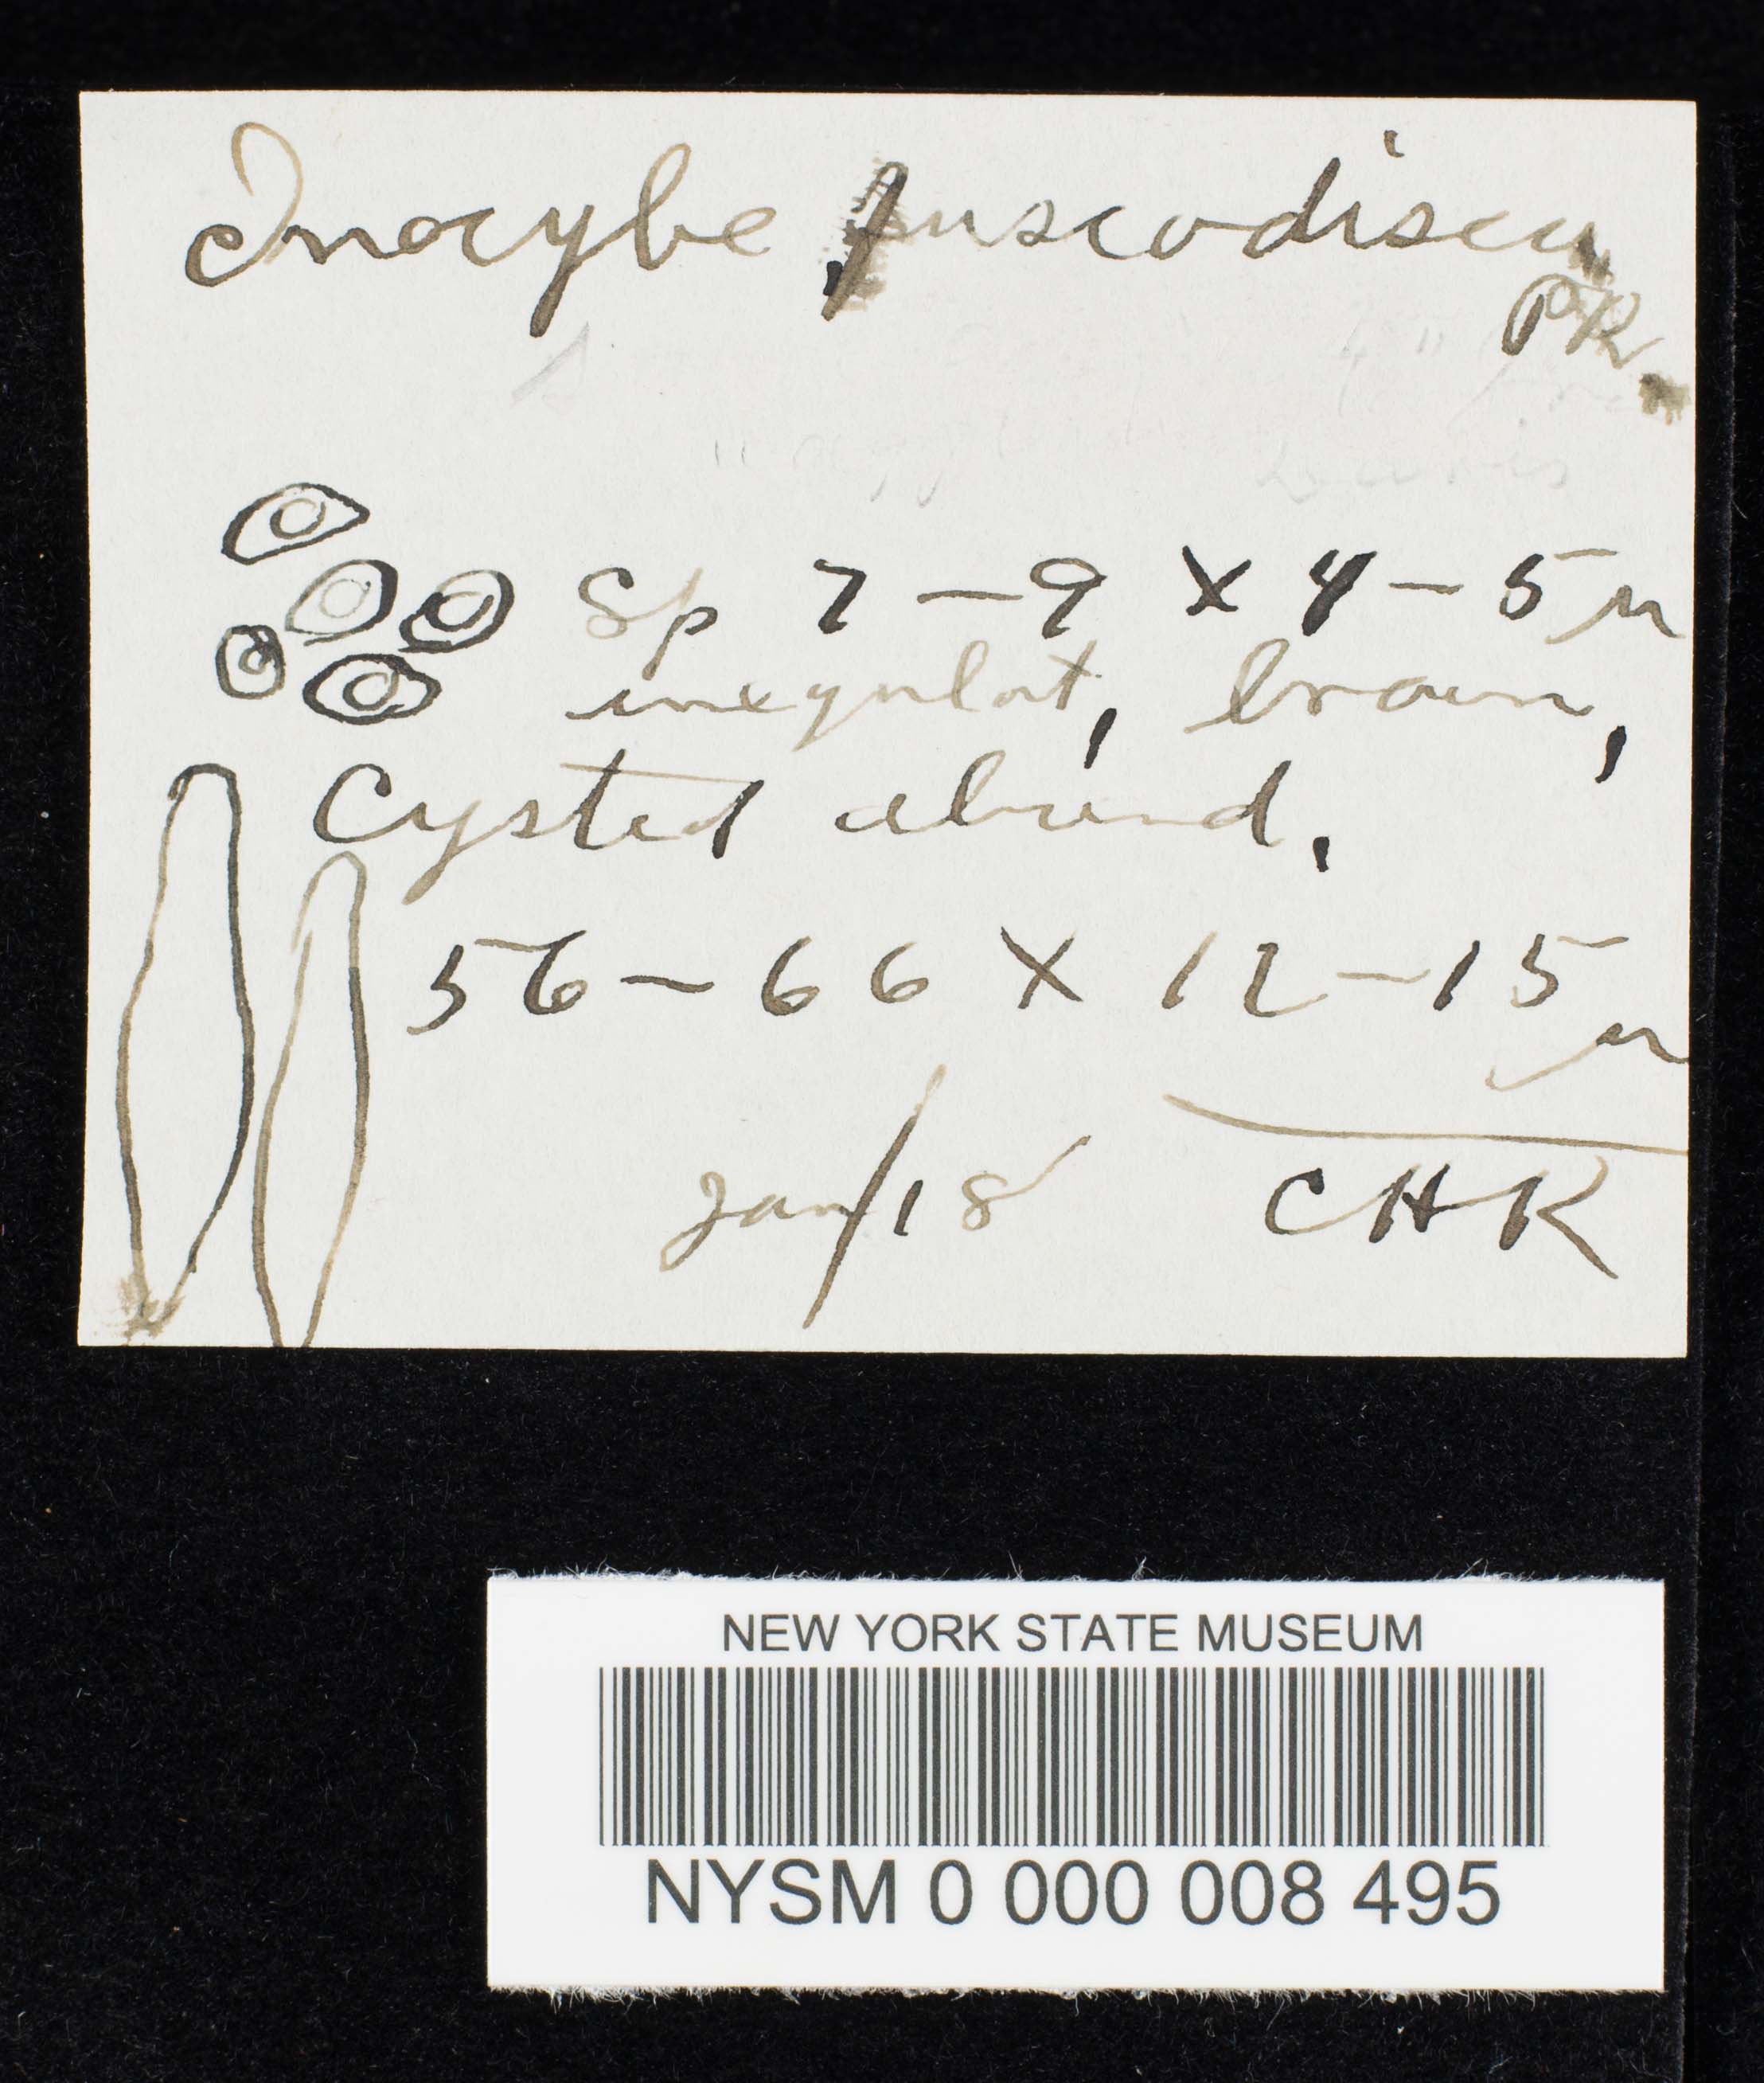 Inocybe fuscodisca
PK.
Sp 7-9 X 4-5 µ
irregular, brown,
Cystid abund.
56-66 X 12-15 µ
Jan/18 CHK
NEW YORK STATE MUSEUM
NYSM 0 000 008 495